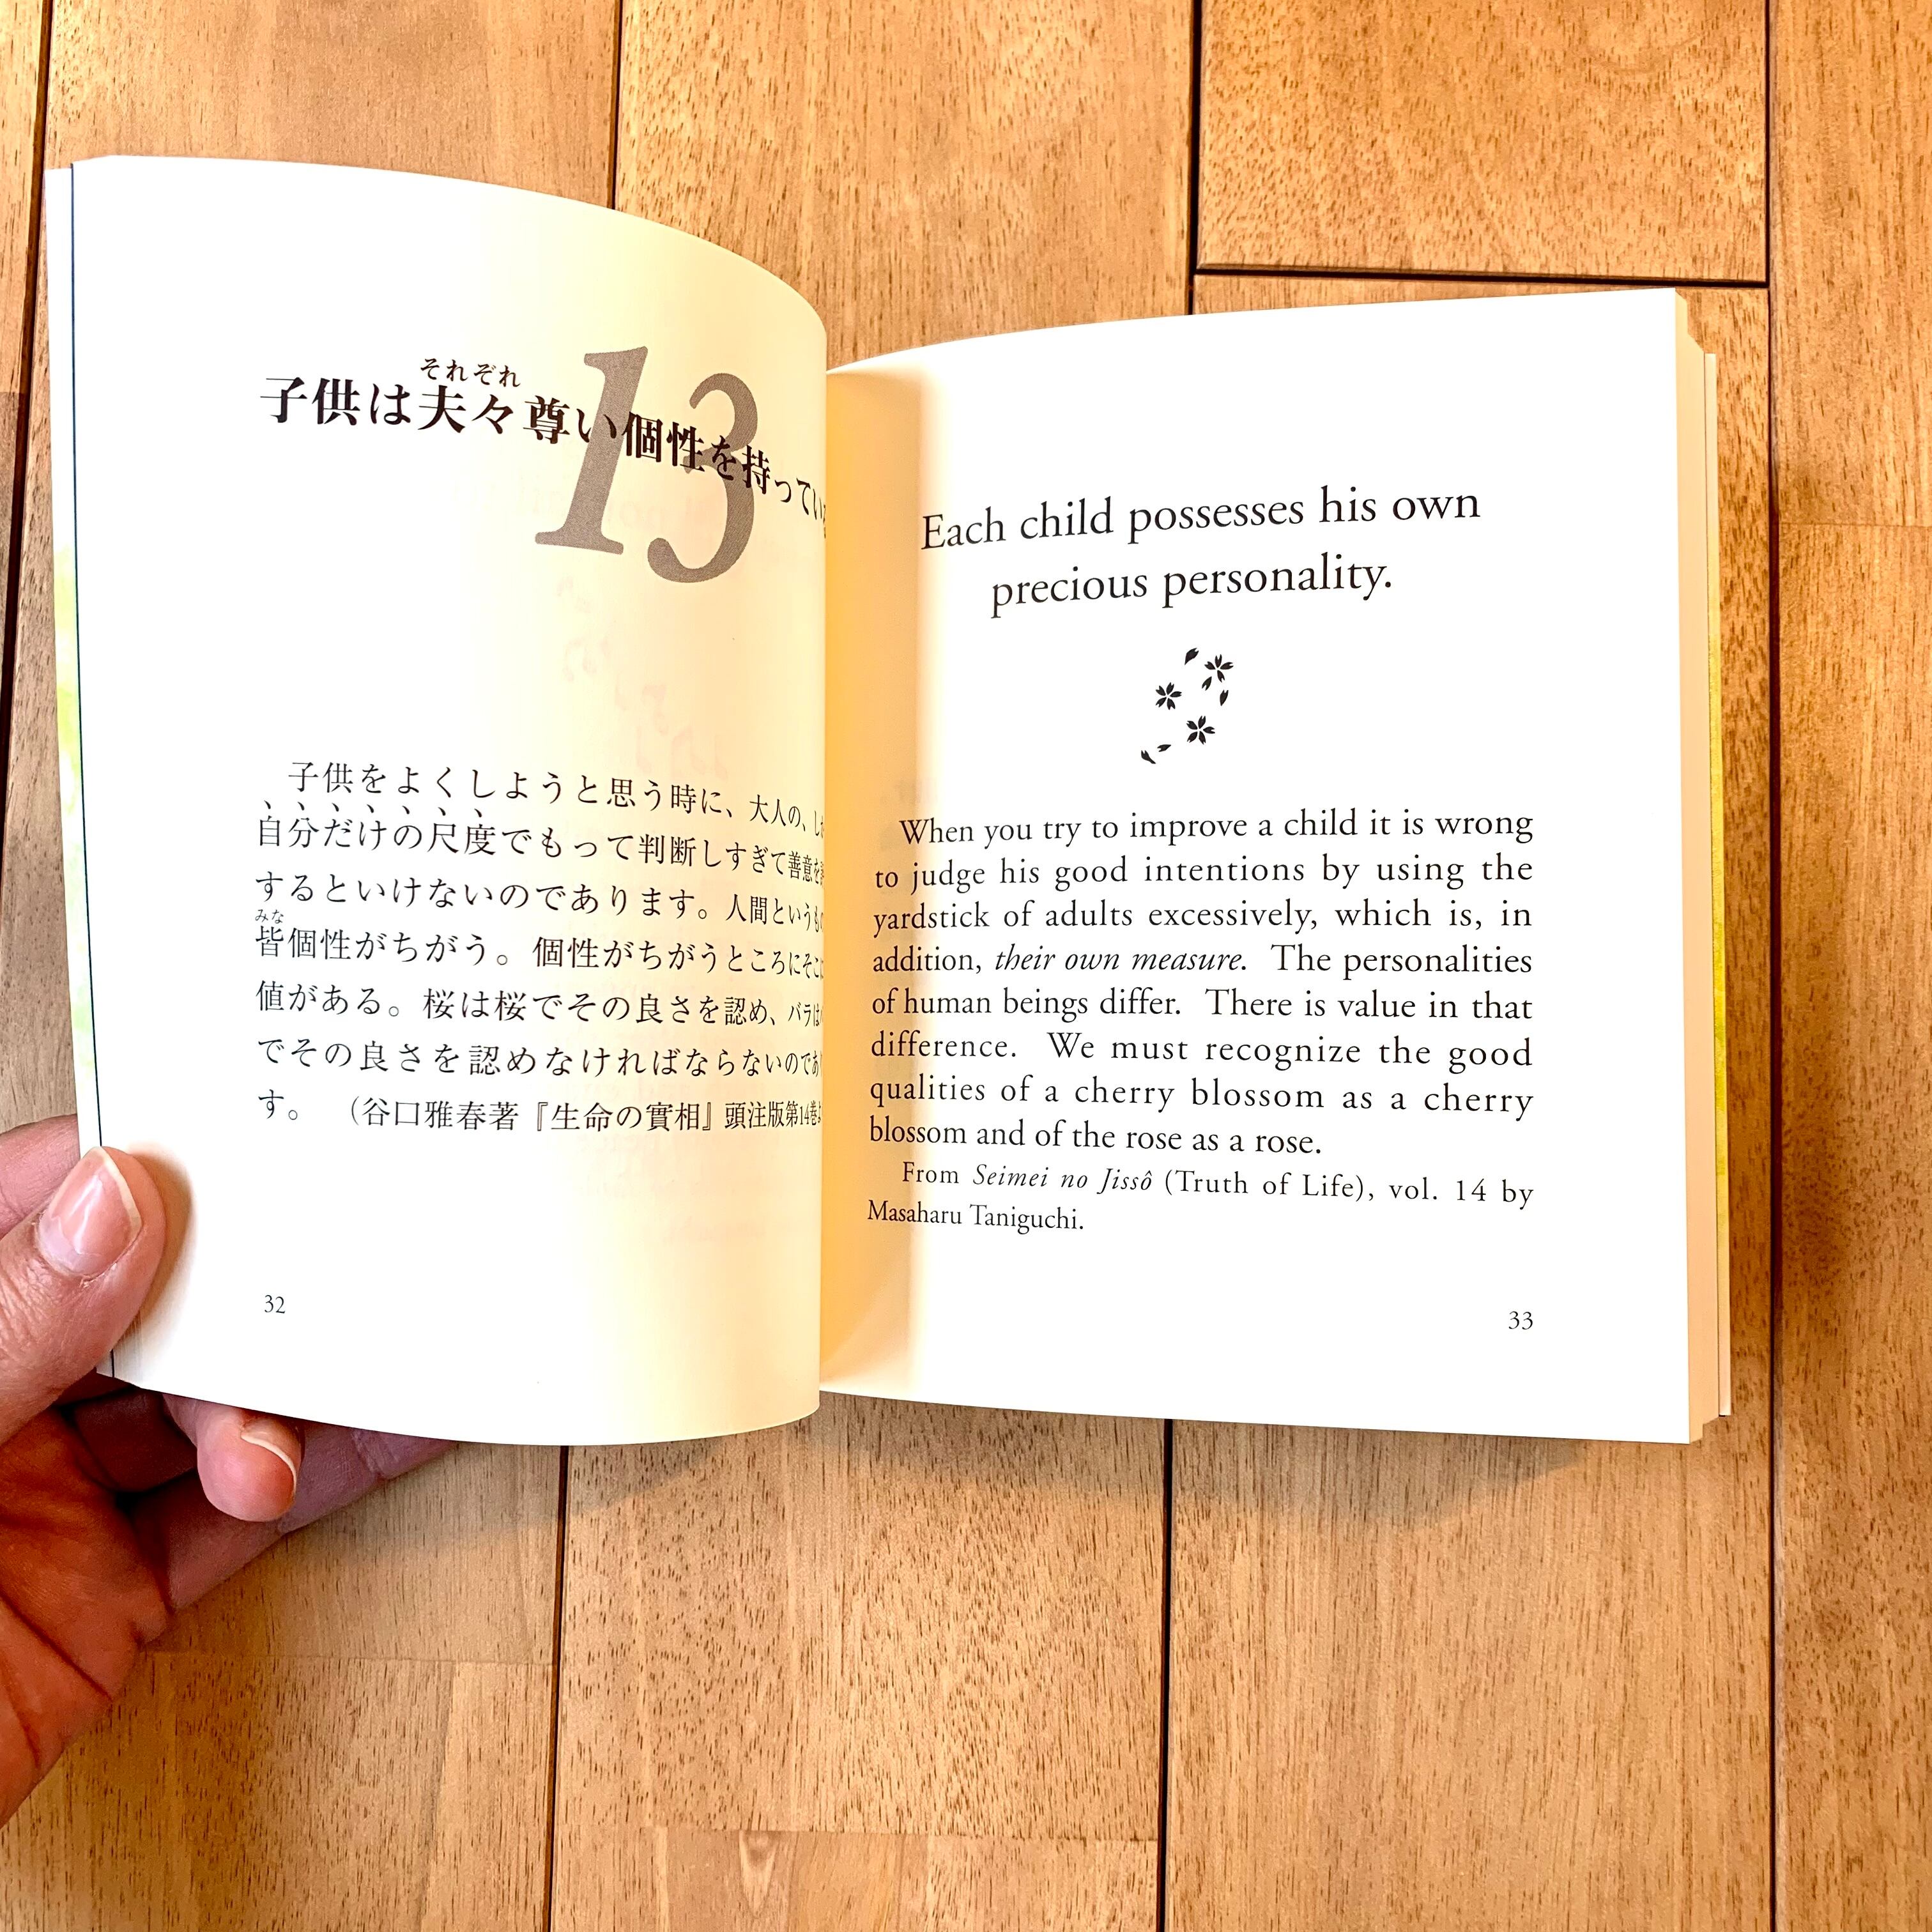 13
それぞれ
子供は夫々尊い個性を持ってい
子供をよくしようと思う時に、大人の、し
自分だけの尺度でもって判断しすぎて善意を
するといけないのであります。人間というも
みな
皆個性がちがう。個性がちがうところにそこ
値がある。桜は桜でその良さを認め、バラは
でその良さを認めなければならないのであ
す。 (谷口雅春著『生命の實相』頭注版第14巻
32
Each child possesses his own
precious personality.
When you try to improve a child it is wrong
to judge his good intentions by using the
yardstick of adults excessively, which is, in
addition, their own measure. The personalities
of human beings differ. There is value in that
difference. We must recognize the good
qualities of a cherry blossom as a cherry
blossom and of the rose as a rose.
From Seimei no Jissô (Truth of Life), vol. 14 by
Masaharu Taniguchi.
33